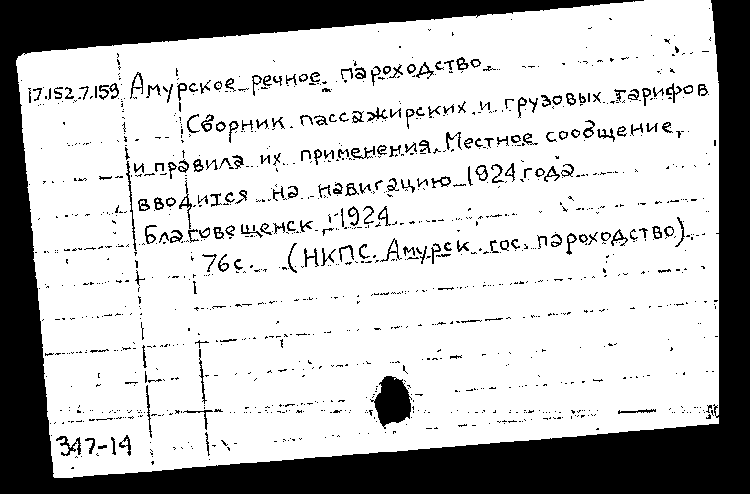 17.152.7.159 Амурское речное пароходство.
Сборник пассажирских и грузовых тарифов
и правила их применения. Местное сообщение,
вводится на навигацию 1924 года
Благовещенск, 1924.
76с. (НКПС. Амурск. гос. пароходство).
347-14